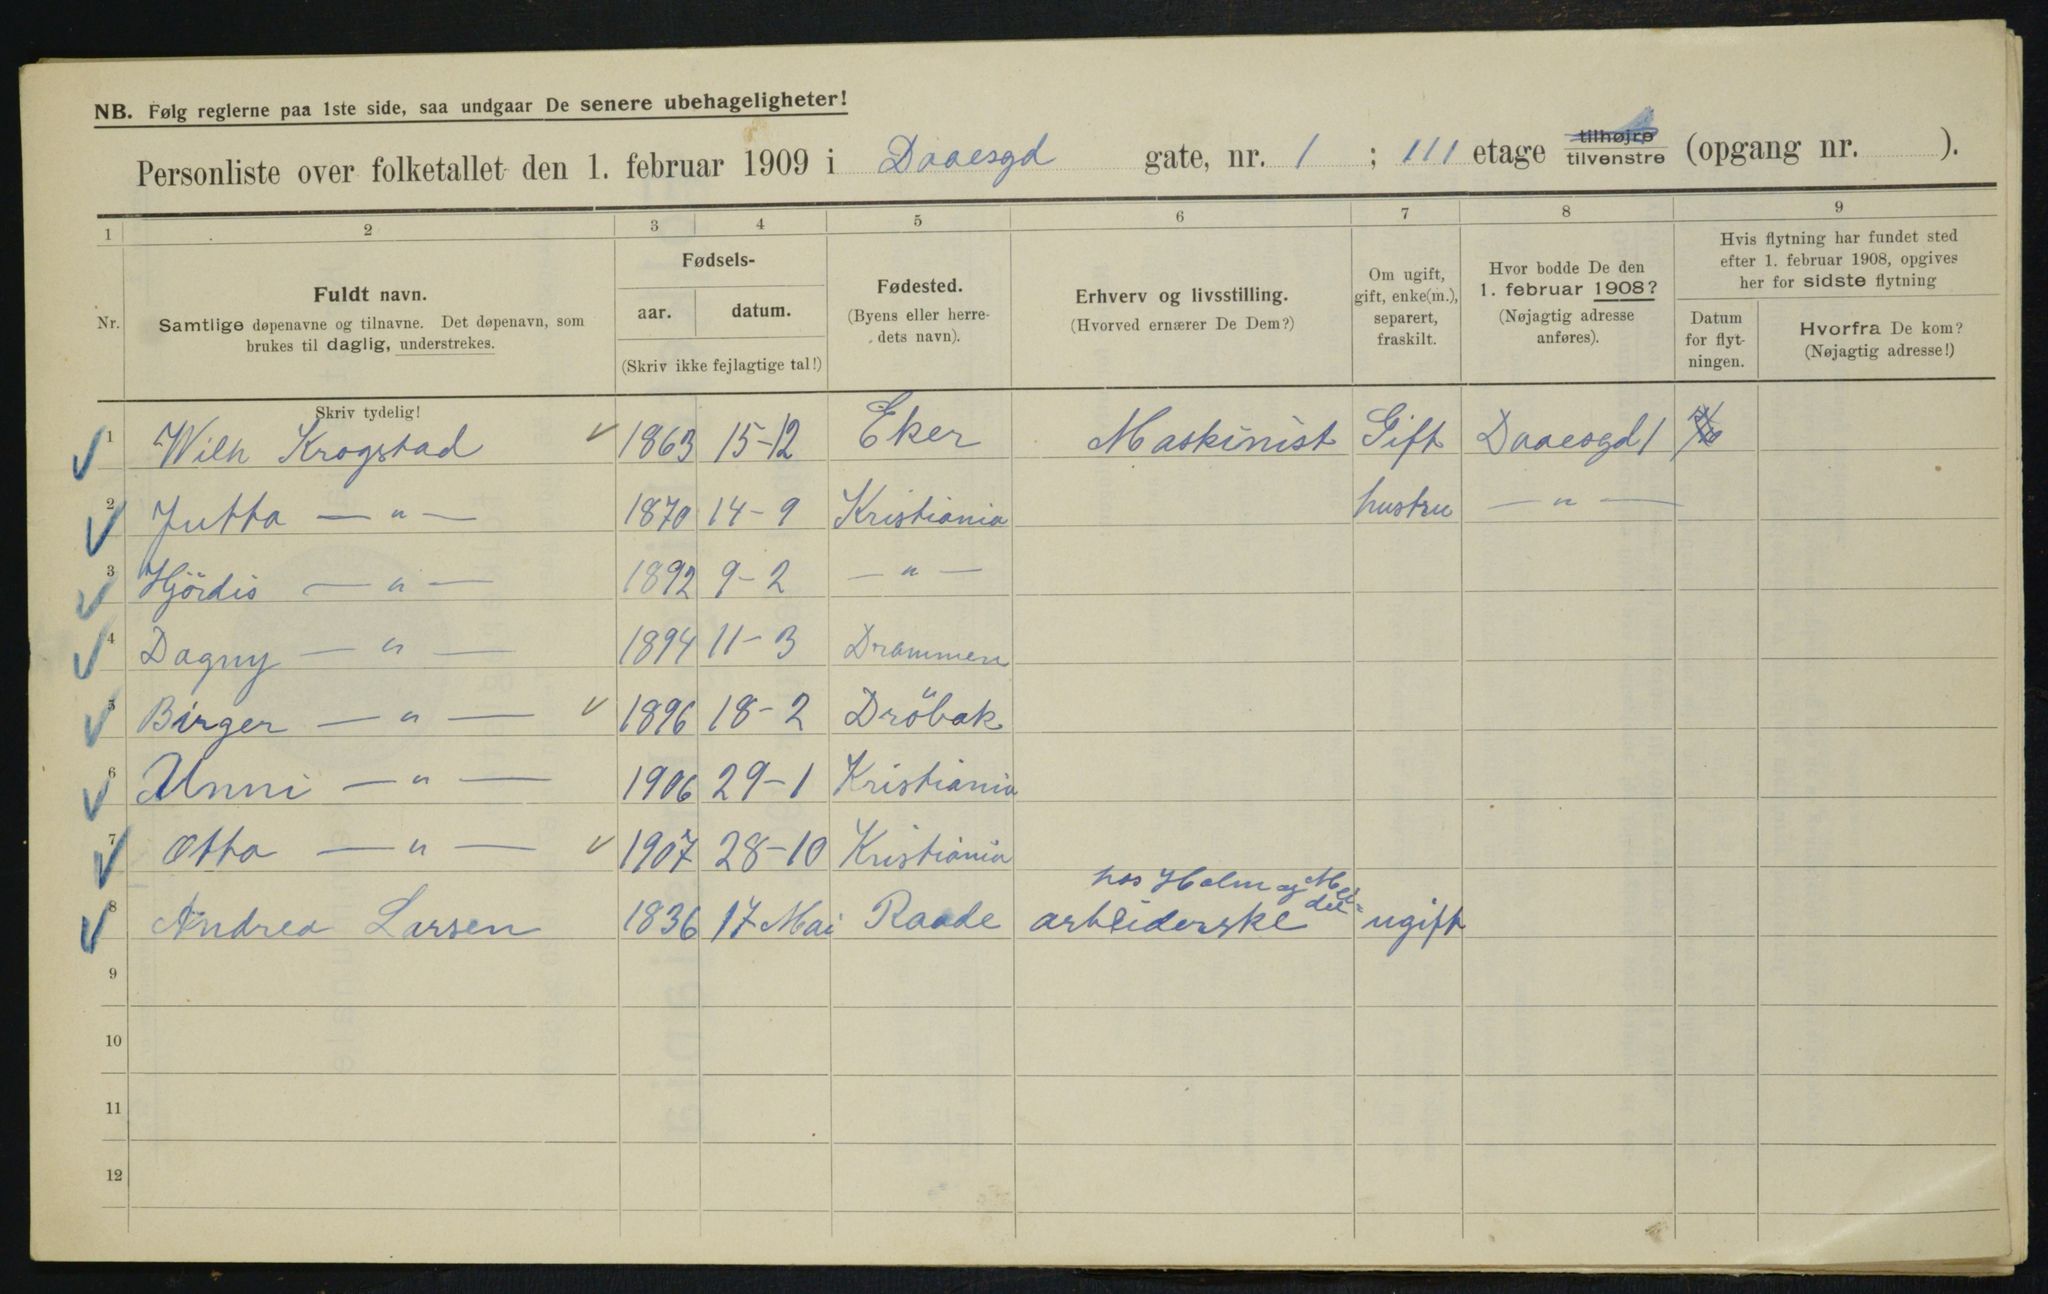 NB. Følg reglerne paa 1ste side, saa undgaar De senere ubehageligheter!
Personliste over folketallet den 1. februar 1909 i Daaesgd gate, nr. 1 ; III etage tilhøjre tilvenstre (opgang nr. ).
1 2 3 4 5 6 7 8 9
Nr.
Fuldt navn.
Samtlige døpenavne og tilnavne. Det døpenavn, som
brukes til daglig, understrekes.
Fødsels-
aar. datum.
(Skriv ikke fejlagtige tal!)
Fødested.
(Byens eller herre-
dets navn).
Erhverv og livsstilling.
(Hvorved ernærer De Dem?)
Om ugift,
gift, enke(m.),
separert,
fraskilt.
Hvor bodde De den
1. februar 1908?
(Nøjagtig adresse
anføres).
Hvis flytning har fundet sted
efter 1. februar 1908, opgives
her for sidste flytning
Datum
for flyt-
ningen.
Hvorfra De kom?
(Nøjagtig adresse!)
Skriv tydelig!
1 Wilh Krogstad 1863 15-12 Eker Maskinist Gift Daaesgd 1
2 Jutta — " — 1870 14-9 Kristiania hustru — " —
3 Hjördis — " — 1892 9-2 — " —
4 Dagny — " — 1894 11-3 Drammen
5 Birger — " — 1896 18-2 Dröbak
6 Unni — " — 1906 29-1 Kristiania
7 Otto — " — 1907 28-10 Kristiania
hos Holm og
8 Andrea Larsen 1836 17 Mai Raade arbeiderske ugift
9
10
11
12